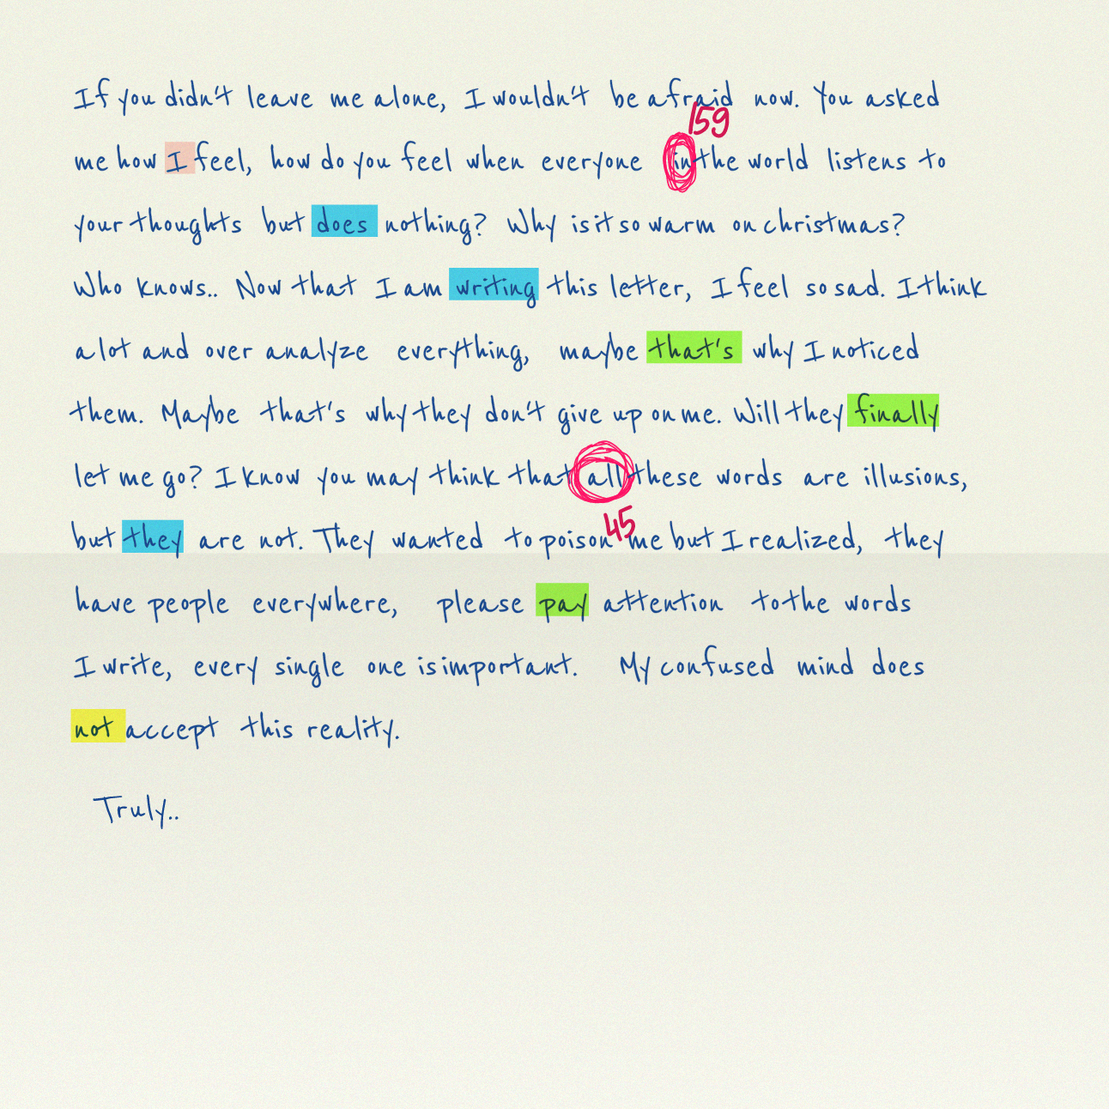 If you didn't leave me alone, I wouldn't be afraid now. You asked
159
me how I feel, how do you feel when everyone in the world listens to
your thoughts but does nothing? Why is it so warm on christmas?
Who knows.. Now that I am writing this letter, I feel so sad. I think
a lot and over analyze everything, maybe that's why I noticed
them. Maybe that's why they don't give up on me. Will they finally
let me go? I know you may think that all these words are illusions,
45
but they are not. They wanted to poison me but I realized, they
have people everywhere, please pay attention to the words
I write, every single one is important. My confused mind does
not accept this reality.
Truly..